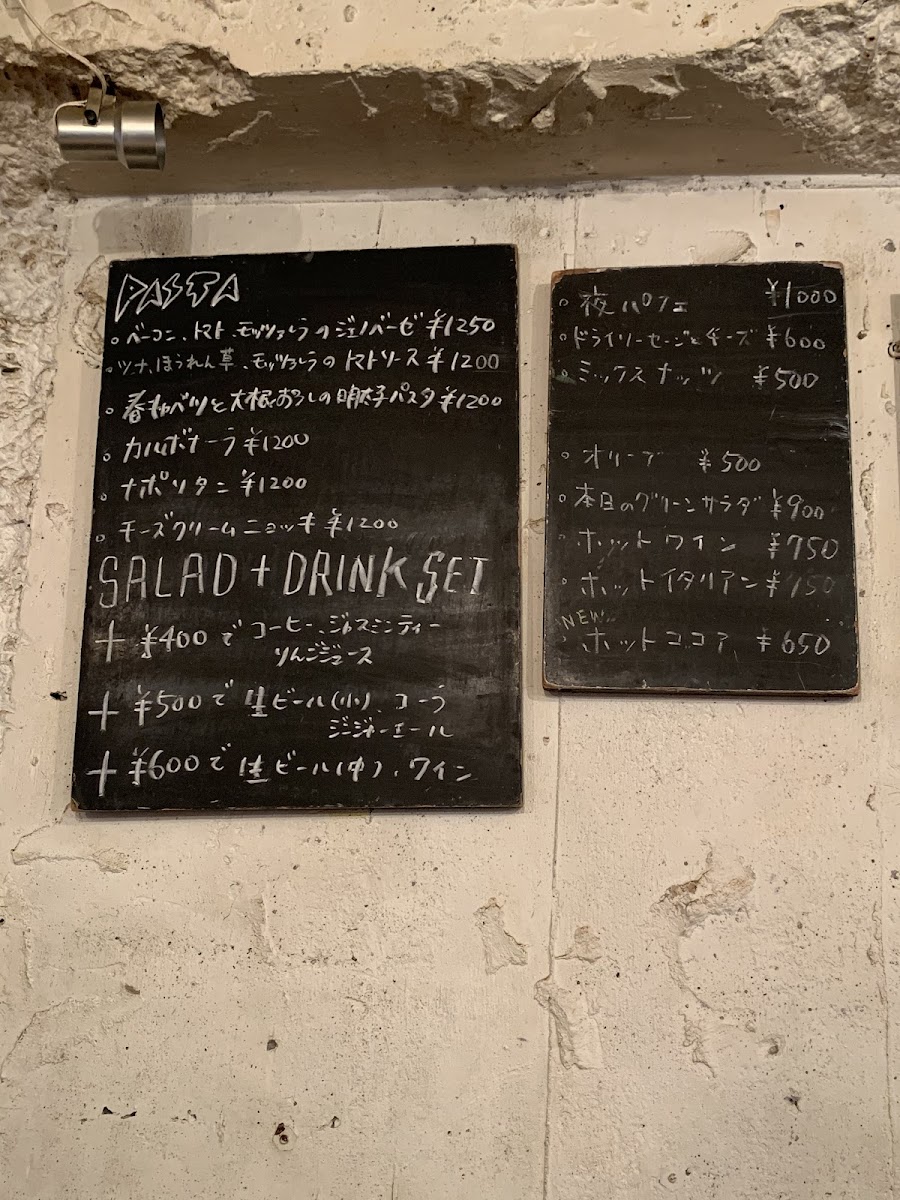 PASTA
。ベーコン、トマト、モッツァレラのジェノベーゼ ¥1250
。ツナ、ほうれん草、モッツァレラのトマトソース ¥1200
。春キャベツと大根おろしの明太子パスタ ¥1200
。カルボナーラ ¥1200
。ナポリタン ¥1200
。チーズクリームニョッキ ¥1200
SALAD + DRINK SET
+ ¥400で コーヒー、ジャスミンティー
りんごジュース
+ ¥500で 生ビール(小)、コーラ
ジンジャーエール
+ ¥600で 生ビール(中)、ワイン
。夜パフェ ¥1000
。ドライソーセージとチーズ ¥600
。ミックスナッツ ¥500
。オリーブ ¥500
。本日のグリーンサラダ ¥900
。ホットワイン ¥750
。ホットイタリアン ¥750
NEW
。ホットココア ¥650